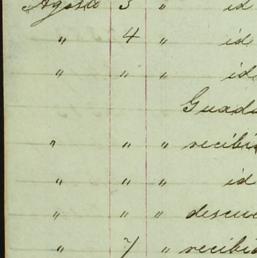 Agosto 3 " id
" 4 " id
" " id
Guada
" " " recibi
" " " id
" " " descu
" 7 " recibid